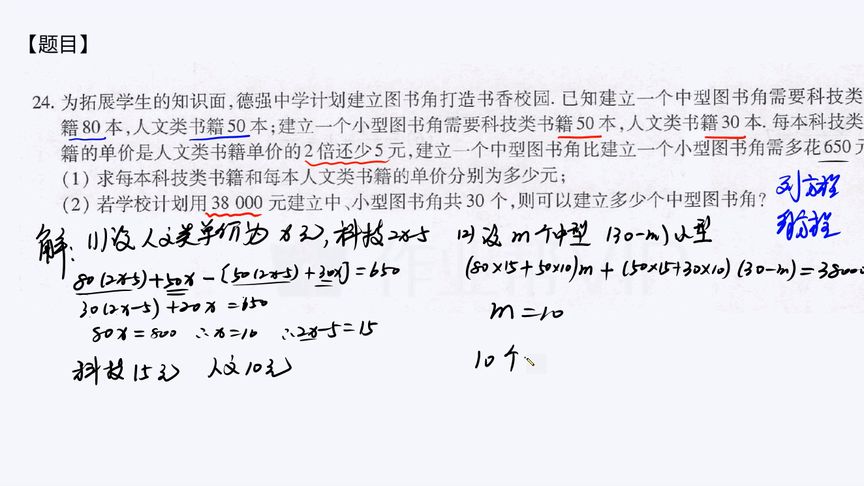 【题目】
24. 为拓展学生的知识面,德强中学计划建立图书角打造书香校园. 已知建立一个中型图书角需要科技类
籍 80 本,人文类书籍 50 本;建立一个小型图书角需要科技类书籍 50 本,人文类书籍 30 本. 每本科技类
籍的单价是人文类书籍单价的 2 倍还少 5 元,建立一个中型图书角比建立一个小型图书角需多花 650 元
(1) 求每本科技类书籍和每本人文类书籍的单价分别为多少元;
(2) 若学校计划用 38 000 元建立中、小型图书角共 30 个,则可以建立多少个中型图书角?
列方程
解方程
解: (1) 设人文类单价为 x 元, 科技 2x-5
80(2x-5)+50x-[50(2x-5)+30x]=650
30(2x-5)+20x=650
80x=800 ∴x=10 ∴2x-5=15
科技 15元 人文 10元
(2) 设 m 个中型 (30-m) 小型
(80×15+50×10)m+(50×15+30×10)(30-m)=38000
m=10
10个